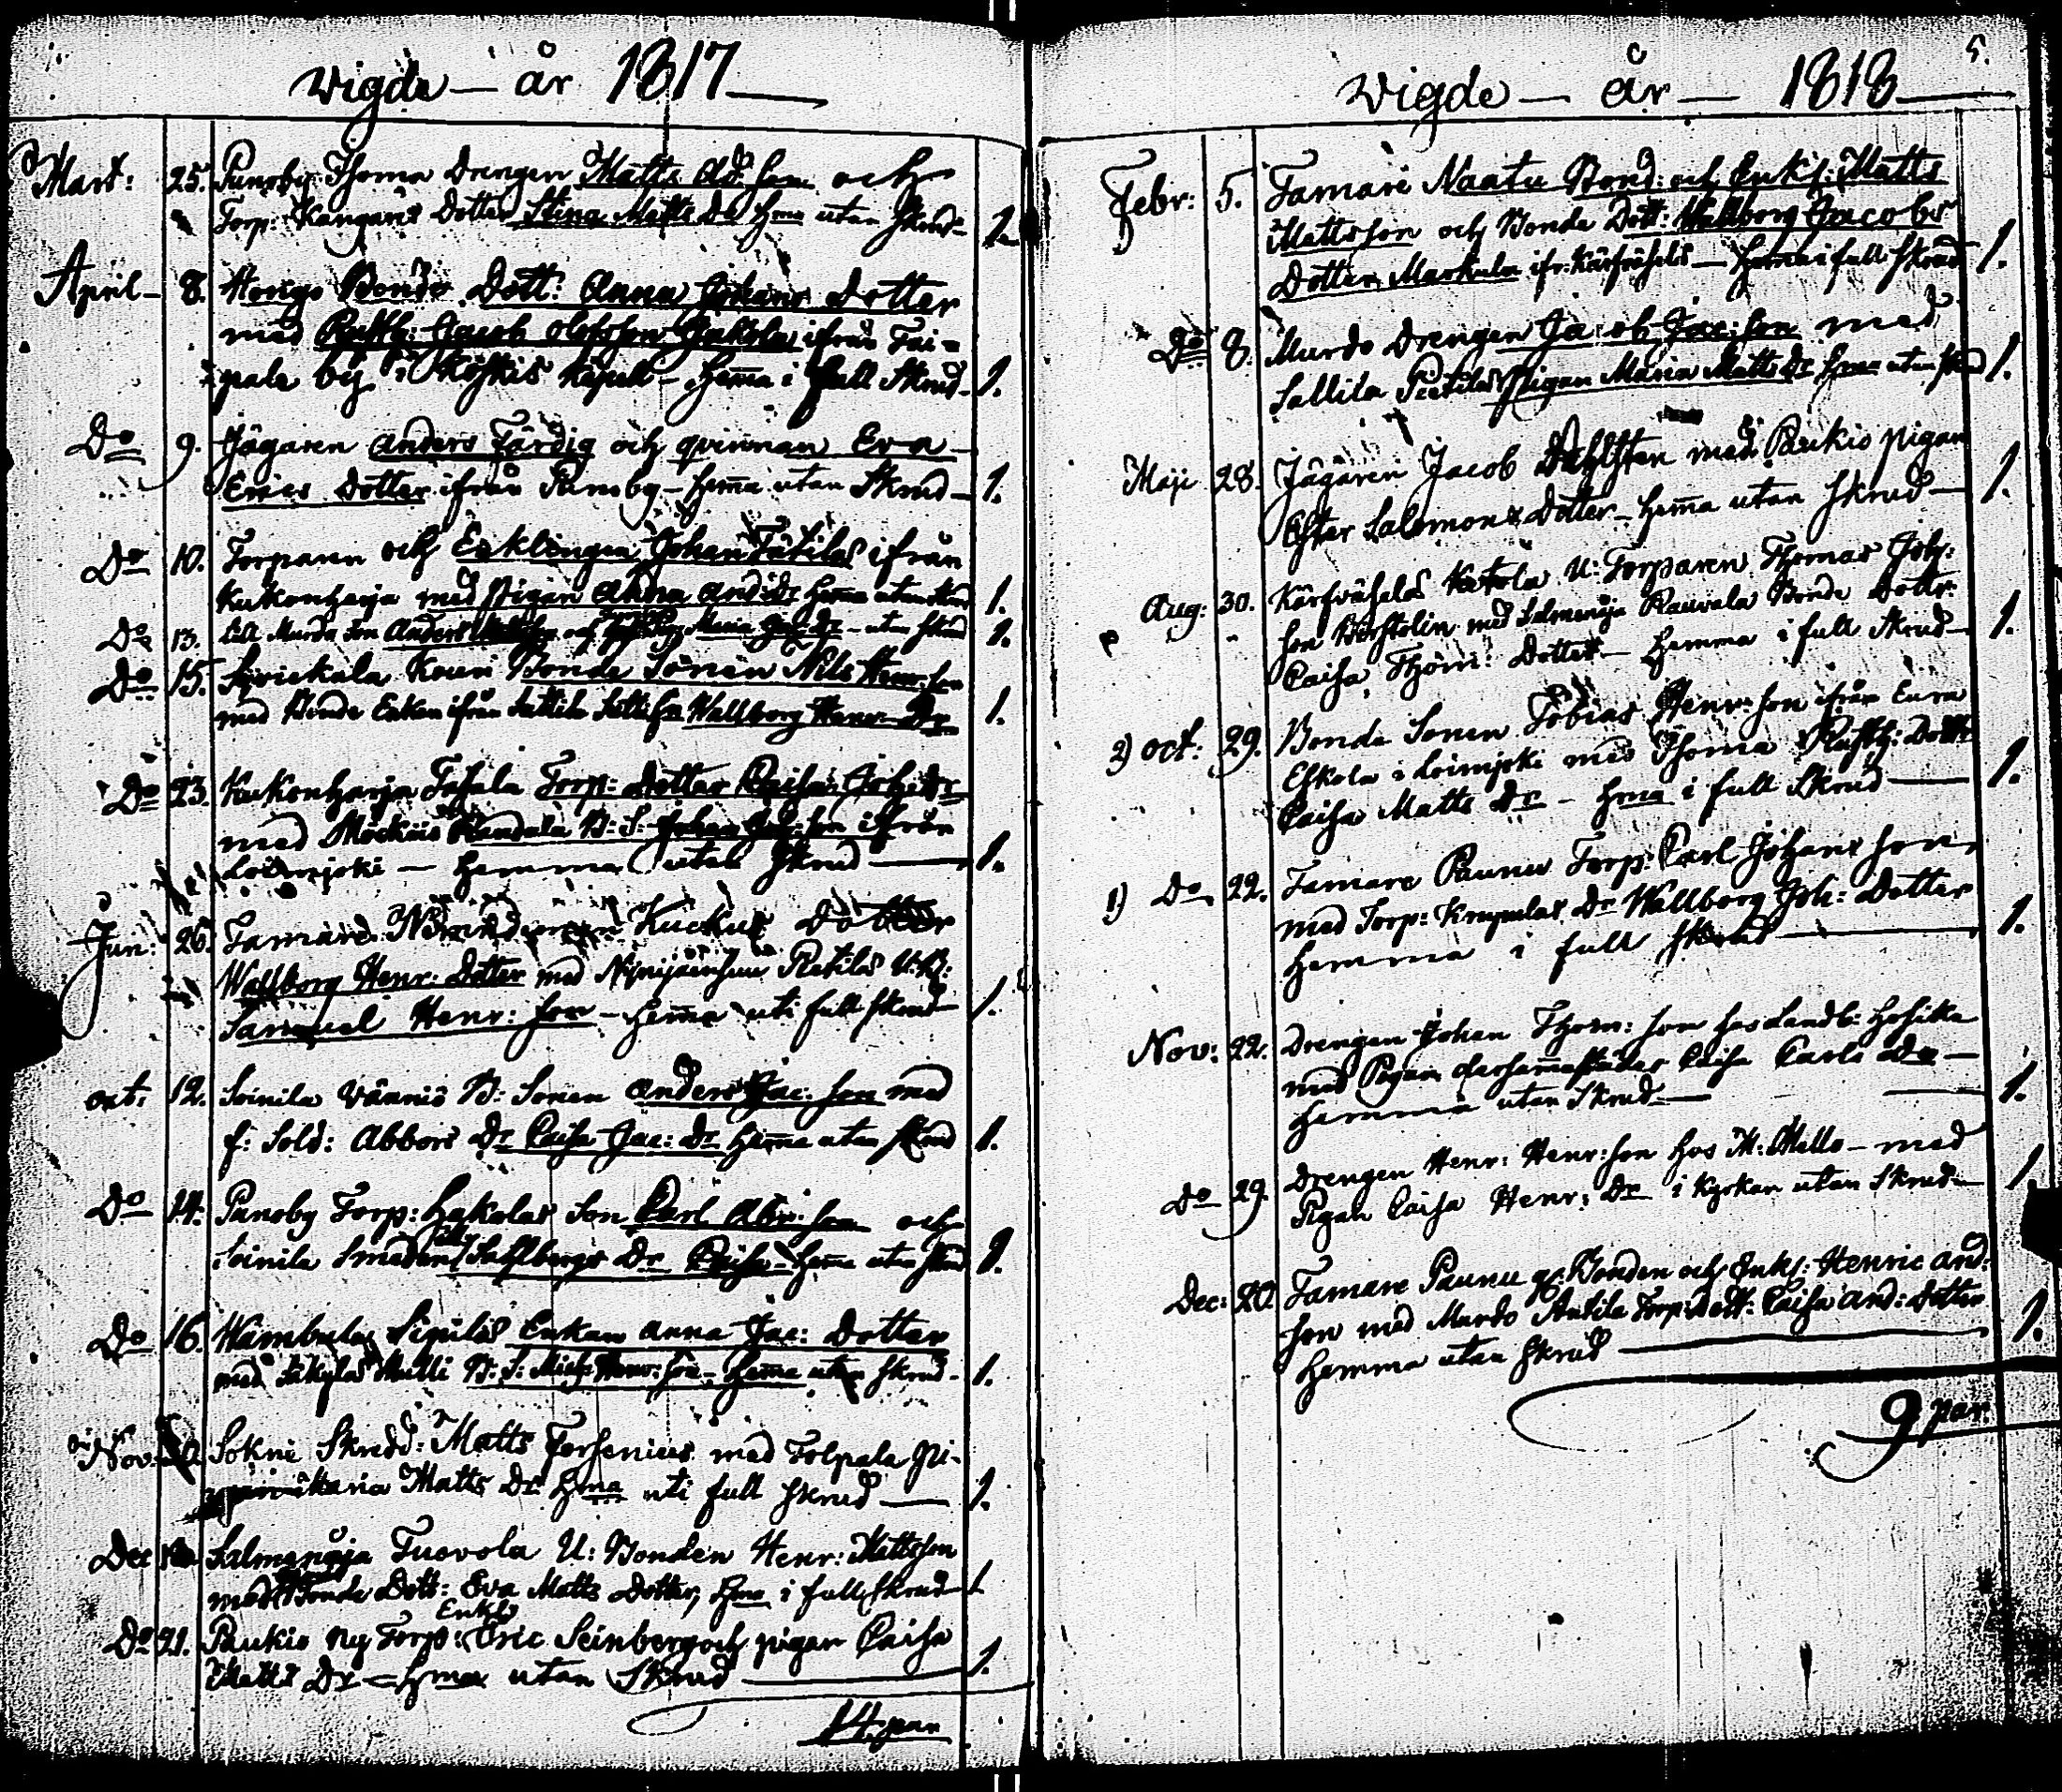 Vigde — år 1817
Mart: 25. Punoby Thoma Drengen Matts Ad: son och
Torp: Kangars Dotter Stina Matts Dr hma utan skrud — 1.
April — 8. Honga Bonde Dott: Anna Johans dotter
med Rusth: Jacob Olofsson Jakola ifrån Tai-
pale by i Köskis Kapell — hema i full Skrud — 1.
Do 9. Jägaren Anders Färdig och qvinnan Eva
Erics Dotter ifrån Punoby — hema utan Skrud — 1.
Do 10. Torparn och Enklingen Johan Tätilas ifrån
Kukonharja med Pigan Anna And: Dr hema utan skrud 1.
Do 13. Murda son Anders och Maria Joh: Dr — utan skrud 1.
Do 15. Kouri Bonde Sonen Nils Henr: son
med Bonde Enkan ifrån Wallborg Henr: Dr 1.
Do 23. Kukonharja Tafala Torp: Dotter Caisa Joh: Dr
med Mäckiäis B: S: Johan Joh: son ifrån
Loimijoki — hemma utan Skrud — 1.
Jun: 26. Tamare Kuckus Dotter
Wallborg Henr: Dotter med Nynijoensuu Pietilas U: B:
Samuel Henr: son — hema uti full skrud 1.
oct. 12. Soinila Vännis B: Sonen Anders Jac: son med
f: Sold: Abbors Dr Caisa Jac: Dr hema utan skrud 1.
Do 14. Punoby Torp: Hakalas Son Carl Abr: son och
Soinila Smeden Sahlbergs Dr Caisa — hema utan skrud 1.
Do 16. Wambula Sipilas Enkan Anna Jac: Dotter
med Säkylas Mulli B: S: Mich: Henr: son — hema utan skrud — 1.
Nov. Sökne Skredd: Matts Forsenius med Tolpala Pi-
Maria Matts Dr hma uti full skrud — 1.
Dec Salmenoja Tuovola U: Bonden Henr: Mattsson
med Bonde Dott: Eva Matts Dotter, hma i full skrud 1
Enkl:
Do 21. Paukio ny Torp: Eric Seinberg och pigan Caisa
Matts Dr — hma utan Skrud — 1.
14 par
5.
Vigde — år — 1818
Febr: 5. Tamare Naatu Bond: och Enkl: Matts
Mattsson och Bonde Dott: Wallborg Jacobs
Dotter Markula ifr: Kärfväselä — hema i full skrud 1.
Do 8. Murdo Drengen Jacob Jac: son med
Sallila Pietilas Pigan Maria Matts Dr hma utan skrud 1.
Maji 28. Jägaren Jacob Dahlsten med Paukio pigan
Ester Salomons Dotter — hema utan skrud — 1.
Aug: 30. Kärfväselas Katola U: Torparen Thomas Joh:
son med Salmenoja Rauvala Bonde Dottr:
Caisa Thom: Dotter — hemma i full skrud — 1.
2) oct: 29. Bonde Sonen Tobias Henr: son ifrån Eura
Eskola i Loimijoki med Thoma Rusth: Dottr
Caisa Matts Dr — hma i full skrud — 1.
1) Do 22. Tamare Paunu Torp: Carl Johans son,
med Torp: Krupulas Dr Wallborg Joh: Dotter
hemma i full skrud — 1.
Nov: 22. Drengen Johan Thom: son hos Landb: Hosika
med Pigan dersammastädes Caisa Carls Dr —
hemma utan Skrud — 1.
Do 29. Drengen Henr: Henr: son hos M: Mello — med
Pigan Caisa Henr: Dr i Kyrkan utan Skrud — 1.
Dec: 20. Tamare Paunu gl: Bonden och Enkl: Henric And:
son med Murdo Antila Torp: dott: Caisa And: dotter
hemma utan skrud — 1.
9 par